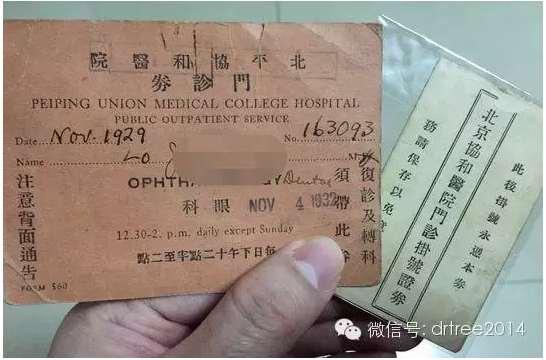 北平協和醫院
門診券
PEIPING UNION MEDICAL COLLEGE HOSPITAL
PUBLIC OUTPATIENT SERVICE
Date Nov. 1929 No. 163093
Name Lo
OPHTH GY Dental
眼科 NOV 4 1932
12.30-2. p.m. daily except Sunday
每日下午十二點半至二點
復診及轉科
須帶此券
注意背面通告
FORM 560
此後掛號永遠本券
北京協和醫院門診掛號證券
務請保存以免
微信号: drtree2014